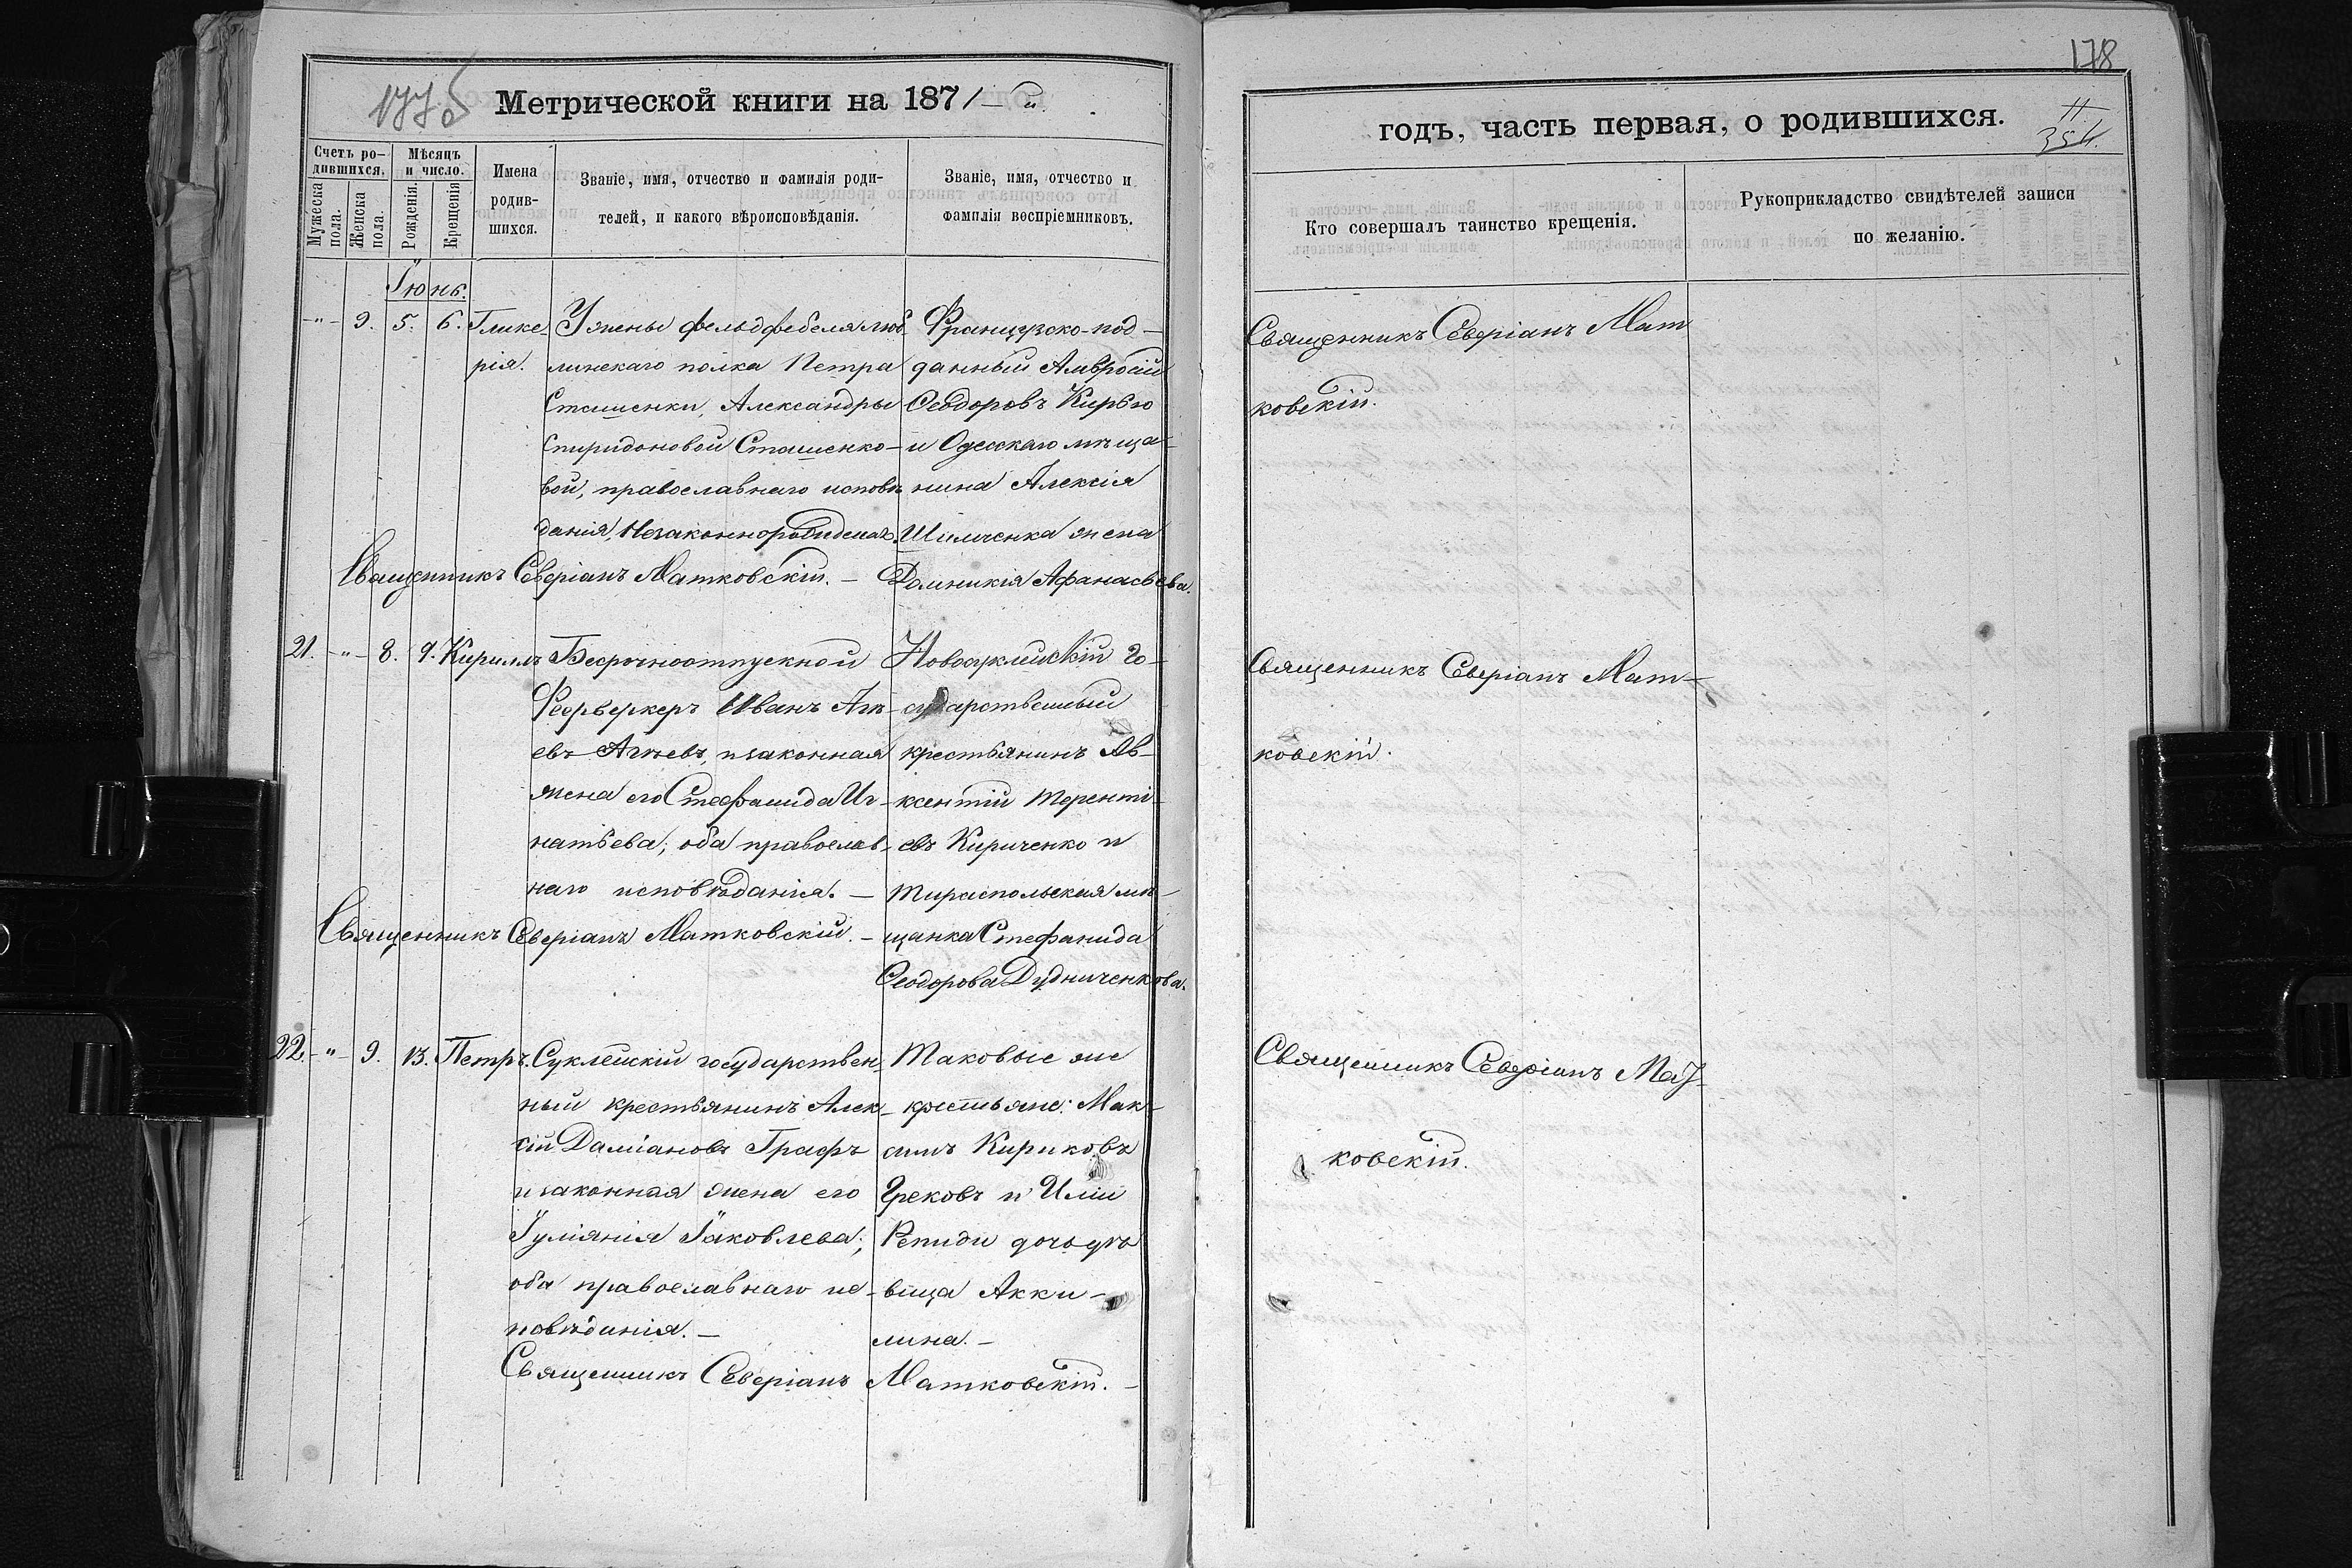 177 б
Метрической книги на 1871-й
Счетъ ро-
дившихся.
Мужеска пола.
Женска пола.
Мѣсяцъ
и число.
Рожденія.
Крещенія
Имена
родив-
шихся.
Званіе, имя, отчество и фамилія роди-
телей, и какого вѣроисповѣданія.
Званіе, имя, отчество и
фамилія воспріемниковъ.
Іюнь.
-"- 9. 5. 6. Глике-
рія.
У жены фельдфебеля люб-
линскаго полка Петра
Сташенки, Александры
Спиридоновой Сташенко-
вой, православнаго исповѣ
данія, Незаконнорожденая.
Французско-под-
данный Амвросій
Ѳеодоровъ Кирью
и Одесскаго мѣща-
нина Алексія
жена
Домникія Афанасьева.
Священникъ Северіанъ Матковскій. -
21. -"- 8. 9. Кириллъ
Безсрочноотпускной
Фейерверкеръ Иванъ Агѣ-
евъ Агѣевъ, и законная
жена его Стефанида Иг-
натьева; оба православ-
наго исповѣданія. -
Новосуклейскій го-
сударственный
крестьянинъ Ав-
ксентій Терентi-
евъ Кириченко и
Тираспольская мѣ-
щанка Стефанида
Ѳеодорова Дудниченкова.
Священникъ Северіанъ Матковскій. -
22. -"- 9. 13. Петръ.
Суклейскій государствен-
ный крестьянинъ Алек-
сій Даміановъ Графъ
и законная жена его
Іуліанія Іаковлева;
оба православнаго ис-
повѣданія. -
Таковые же
крестьяне: Мак-
симъ Кириковъ
Грековъ и Иліи
Репиди дочь дѣ-
вица Акки-
лина. -
Священникъ Северіанъ Матковскій. -
178
годъ, часть первая, о родившихся.
354.
Кто совершалъ таинство крещенія.
Рукоприкладство свидѣтелей записи
по желанію.
Священникъ Северіанъ Мат
ковскій.
Священникъ Северіанъ Мат-
ковскій.
Священникъ Северіанъ Мат-
ковскій.